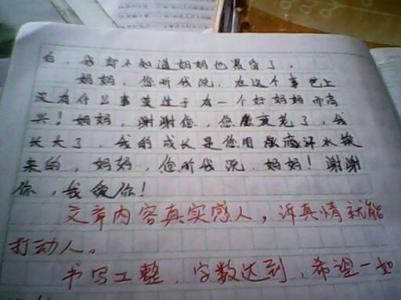 白，我都不知道妈妈也混合了。
妈妈，您听我说，在这个事世上
没有什么事莫过于有一个好妈妈而高
兴！妈妈，谢谢您，您磨变老了，我
长大了，我的成长是您用血滴汗水换
来的，妈妈，您听我说，妈妈！谢谢
你，我爱你！
文章内容真实感人，诉真情就能
打动人。
书写工整，字数达到，希望一如